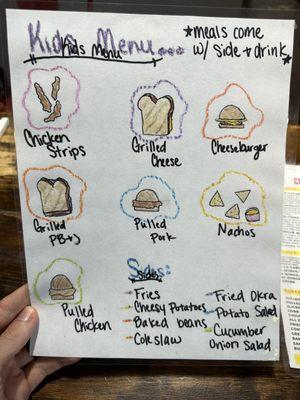 Kids Menu...
Kids Menu
*meals come
w/ side + drink*
Chicken
Strips
Grilled
Cheese
Cheeseburger
Grilled
PB+J
Pulled
Pork
Nachos
Pulled
Chicken
Sides:
Sides
- Fries
- Cheesy Potatoes
- Baked beans
- Coleslaw
- Fried Okra
- Potato Salad
- Cucumber
Onion Salad